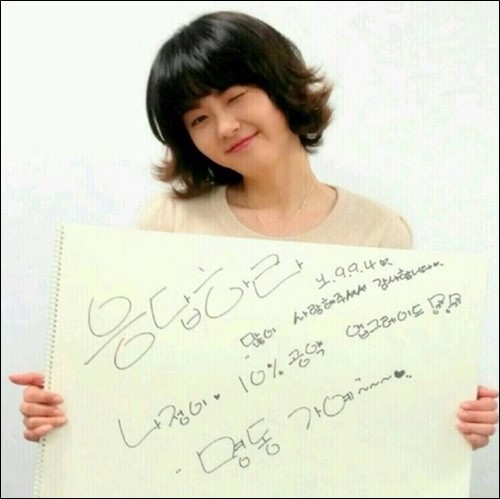 응답하라 1.9.9.4 ㅁ.
많이 사랑해주셔서 감사합니다.
나정이. 10% 공약 업그레이드
.. 명동 가예~~~~♥.